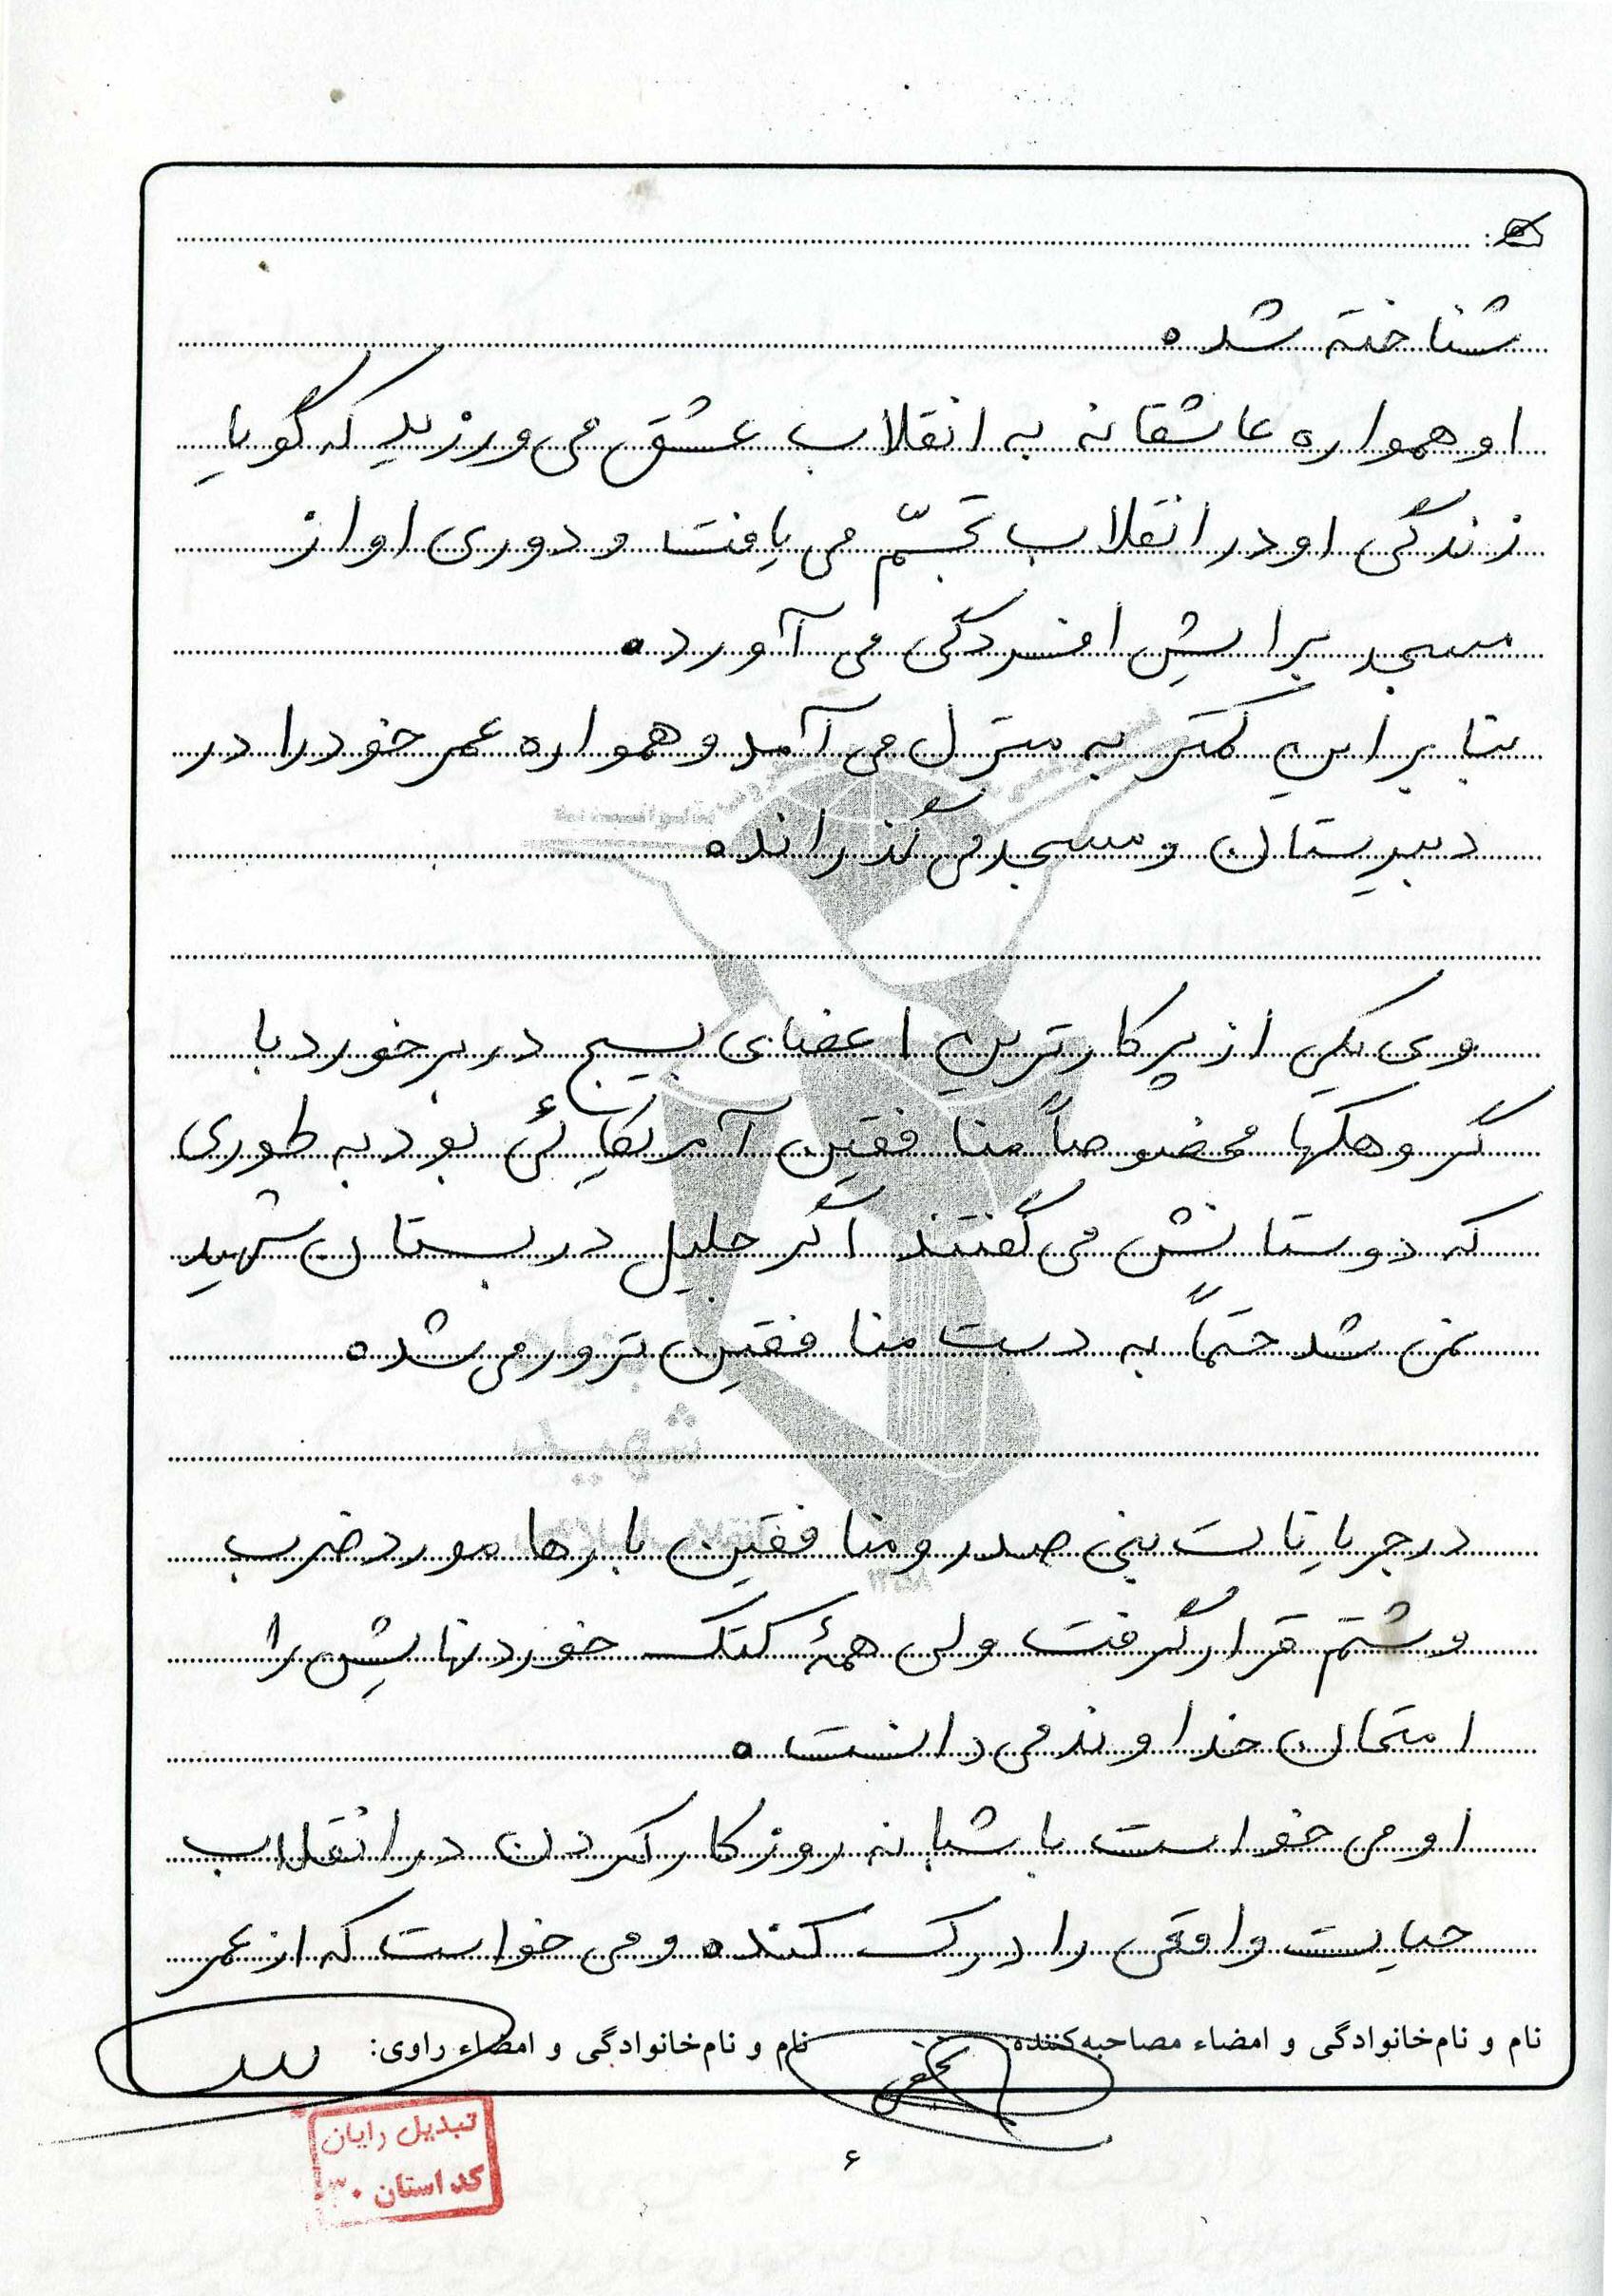 شناخته شد.
او همواره عاشقانه به انقلاب عشق می ورزید که گویا
زندگی او در انقلاب تجسّم می یافت و دوری او از
مسجد برایش افسردگی می آورد.
بنابراین کمتر به منزل می آمد و همواره عمر خود را در
دبیرستان و مسجد می گذراند.
وی یکی از پرکارترین اعضای بسیج در برخورد با
گروهکها مخصوصاً منافقین آمریکائی بود به طوری
که دوستانش می گفتند اگر جلیل در بستان شهید
نمی شد حتماً به دست منافقین ترور می شد.
در جریانات بنی صدر و منافقین بارها مورد ضرب
و شتم قرار گرفت ولی همۀ کتک خوردنهایش را
امتحان خداوند می دانست.
او می خواست با شبانه روز کار کردن در انقلاب
حیات واقعی را درک کند. و می خواست که از عمر
نام و نام‌خانوادگی و امضاء مصاحبه‌کننده: نام و نام‌خانوادگی و امضاء راوی:
تبدیل رایان
کد استان ۳۰
۶